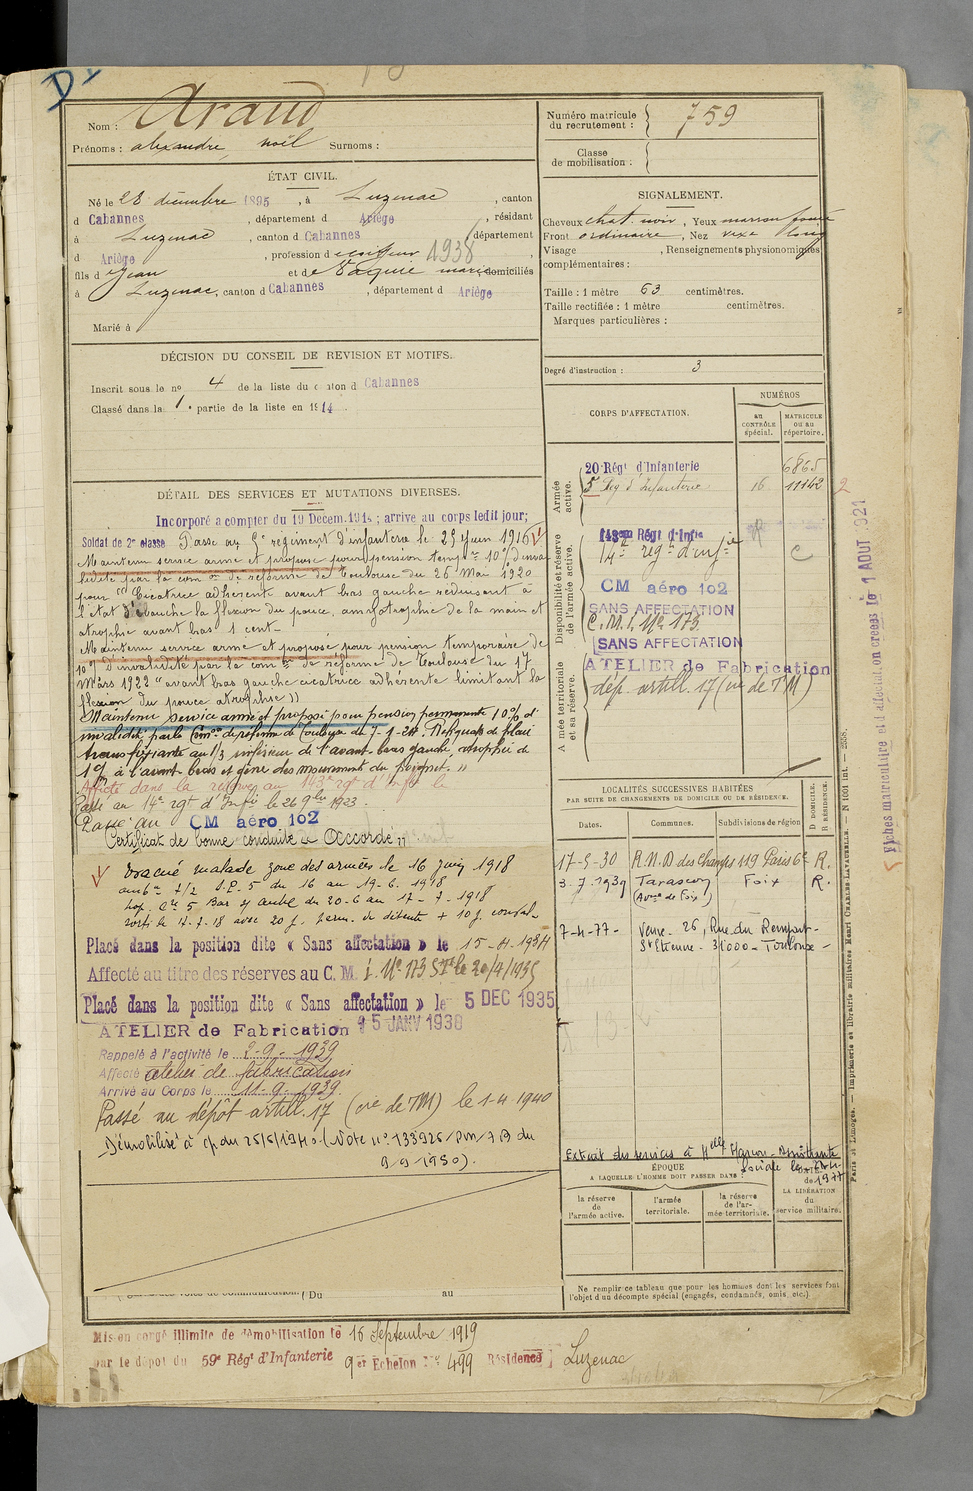 Nom : Araud
Prénoms : alexandre, noël Surnoms :
Numéro matricule du recrutement : 759
Classe de mobilisation :
ÉTAT CIVIL.
Né le 28 décembre 1895, à Luzenac, canton
d Cabannes, département d Ariège, résidant
à Luzenac, canton d Cabannes, département
d Ariège, profession d coiffeur 1938,
fils d Jean et d
domiciliés
à Luzenac, canton d Cabannes, département d Ariège
Marié à
SIGNALEMENT.
Cheveux chat. noir, Yeux marron foncé
Front ordinaire, Nez vexe long
Visage , Renseignements physionomiques
complémentaires :
Taille : 1 mètre 63 centimètres.
Taille rectifiée : 1 mètre centimètres.
Marques particulières :
Degré d'instruction : 3
DÉCISION DU CONSEIL DE REVISION ET MOTIFS.
Inscrit sous le no 4 de la liste du canton d Cabannes
Classé dans la 1e partie de la liste en 1914
DÉTAIL DES SERVICES ET MUTATIONS DIVERSES.
Incorporé a compter du 19 Décem. 1914 ; arrive au corps ledit jour;
Soldat de 2e classe Passé au régiment d'infanterie le 25 Juin 1916
Maintenu service armé et proposé pour pension tempre 10% d'inva
lidité par la comon de réforme de Toulouse du 26 Mai 1920
pour "Cicatrice adhérente avant bras gauche réduisant à
l'état d'ébauche la flexion du pouce, amyotrophie de la main et
atrophie avant bras 1 cent-
Maintenu service armé et proposé pour pension temporaire de
10% d'invalidité par la comon de réforme de Toulouse du 17
Mars 1922 "avant bras gauche cicatrice adhérente limitant la
flexion du pouce atrophie"
Maintenu service armé et proposé pour pension permanente 10% d'
invalidité par la Comon de réforme de Toulouse du 7-1-24. Reliquats de plaie
transfixiante au 1/3 inférieur de l'avant bras gauche, atrophie de
1% à l'avant bras et gêne des mouvements du poignet."
Affecté dans la réserve au 143e rgt d'Infie le
Passé au 14e rgt d'Infie le 26 9bre 1923.
Passé au CM aéro 102
Certificat de bonne conduite Accordé
Evacué malade zone des armées le 16 juin 1918
amb 7/2 S.P. 5 du 16 au 19-6. 1918
hop. 5 Bar s/ Aube du 20-6 au 17-7-1918
sorti le 17-7-18 avec 20 j. perm. de détente + 10 j. conval-
Placé dans la position dite « Sans affectation » le 15-4-1934
Affecté au titre des réserves au C. M. I. No 173 le 20/4/1935
Placé dans la position dite « Sans affectation » le 5 DEC 1935
ATELIER de Fabrication 15 JANV 1938
Rappelé à l'activité le 2-9-1939
Affecté atelier de fabrication
Arrivé au Corps le 11-9-1939
Passé au dépôt artill. 17 (cie de TM) le 1-4-1940
Démobilisé à cp. du 25/6/1940 (Note no 133926/PM/7B du
9/9/1950).
(Du au
CORPS D'AFFECTATION.
NUMÉROS
au CONTRÔLE spécial.
MATRICULE ou au répertoire.
Armée active.
20 Régt d'Infanterie 6865
5e Reg d'Infanterie 16 11142 2
Disponibilité et réserve de l'armée active.
143eme Régt d'Infie
14e regt d'infie
C
CM aéro 102
SANS AFFECTATION
C.M.I. No 173.
SANS AFFECTATION
Armée territoriale et sa réserve.
ATELIER de Fabrication
dép. artill. 17 (cie de TM)
LOCALITÉS SUCCESSIVES HABITÉES
PAR SUITE DE CHANGEMENTS DE DOMICILE OU DE RÉSIDENCE.
D DOMICILE. R RÉSIDENCE.
Dates. Communes. Subdivisions de région
17-5-30 R.N.D des Champs 119 Paris 6e R.
3-7-1939 Tarascon Foix R.
(Avnue de Foix)
7-4-77- Veuve - 26, Rue du Rempart-
St Etienne - 31000 - Toulouse -
Extrait des services à Melle Marion - Assistante
sociale
1977
ÉPOQUE
A LAQUELLE L'HOMME DOIT PASSER DANS :
la réserve de l'armée active.
l'armée territoriale.
la réserve de l'armée territoriale.
DATE de LA LIBÉRATION du service militaire.
Ne remplir ce tableau que pour les hommes dont les services font
l'objet d'un décompte spécial (engagés, condamnés, omis, etc.)
Mis en congé illimité de démobilisation le 16 Septembre 1919
par le dépôt du 59e Régt d'Infanterie 9e Echelon No 499 Résidence Luzenac
Fiches matriculaire et d'affectation créées le 1 AOUT 1921
Paris et Limoges. — Imprimerie et librairie militaires Henri CHARLES-LAVAUZELLE. — N 1001 int. — 2558.